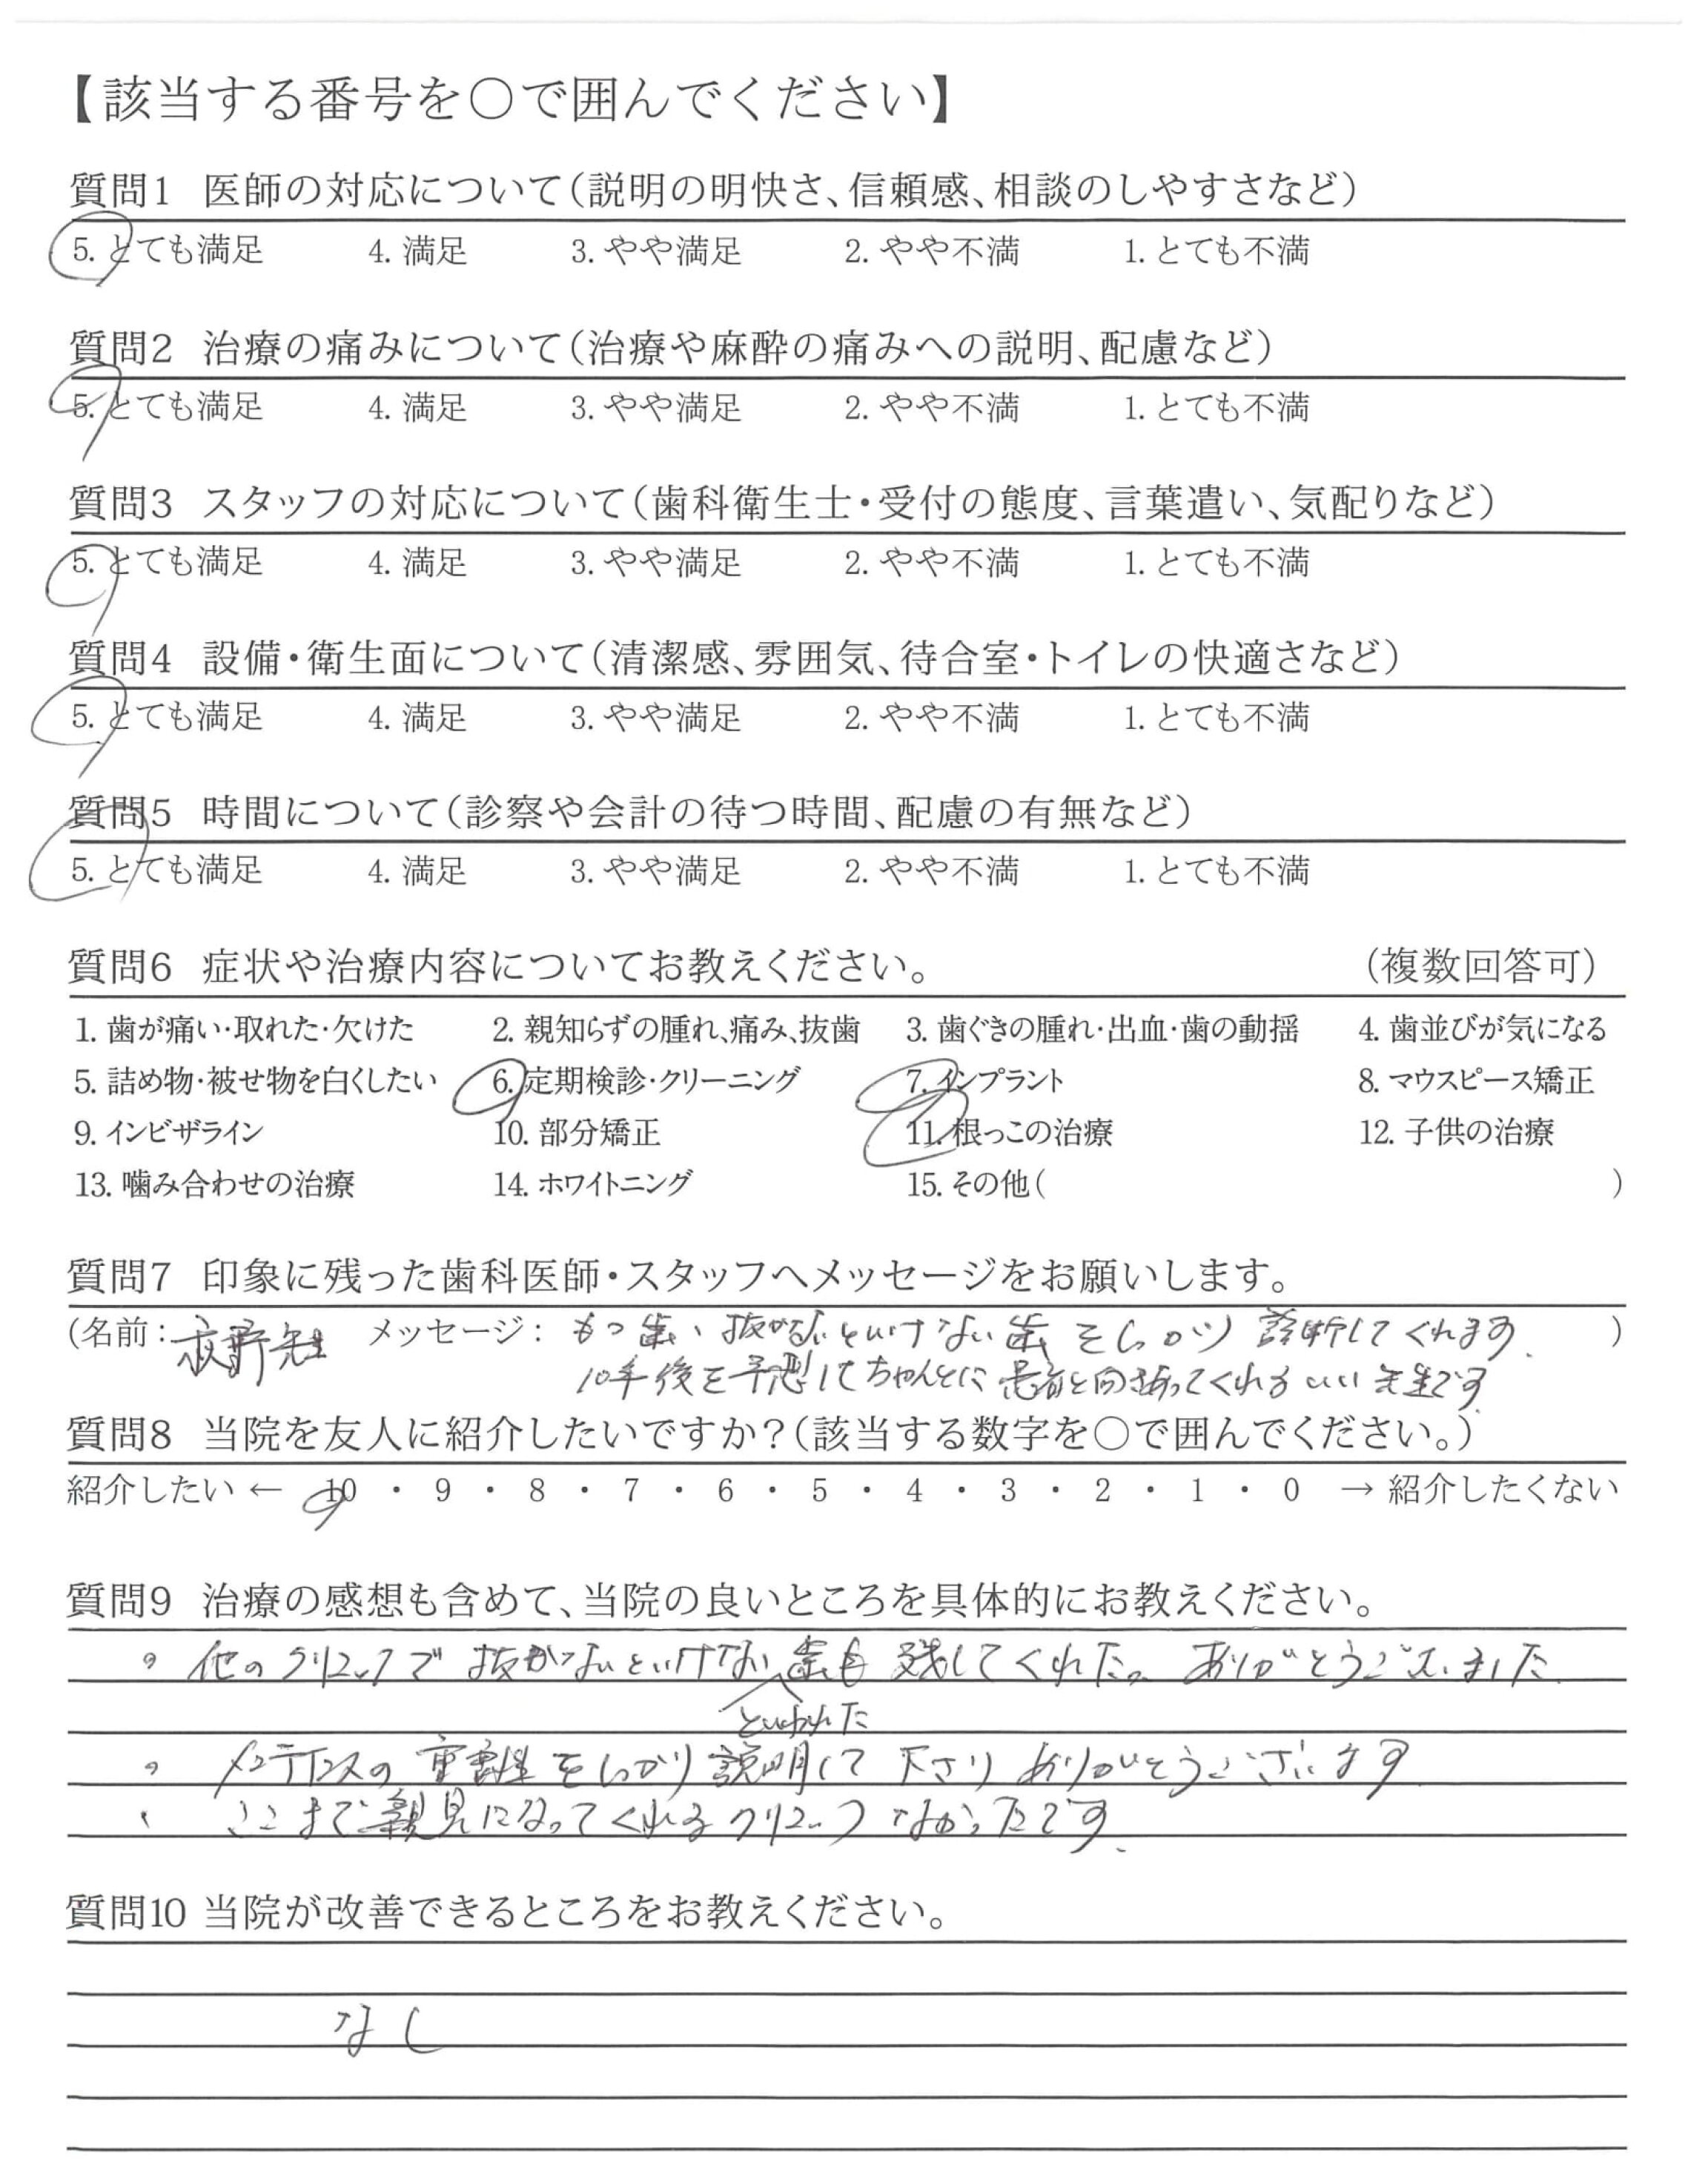 【該当する番号を○で囲んでください】
質問1 医師の対応について(説明の明快さ、信頼感、相談のしやすさなど)
5. とても満足 4. 満足 3. やや満足 2. やや不満 1. とても不満
質問2 治療の痛みについて(治療や麻酔の痛みへの説明、配慮など)
5. とても満足 4. 満足 3. やや満足 2. やや不満 1. とても不満
質問3 スタッフの対応について(歯科衛生士・受付の態度、言葉遣い、気配りなど)
5. とても満足 4. 満足 3. やや満足 2. やや不満 1. とても不満
質問4 設備・衛生面について(清潔感、雰囲気、待合室・トイレの快適さなど)
5. とても満足 4. 満足 3. やや満足 2. やや不満 1. とても不満
質問5 時間について(診察や会計の待つ時間、配慮の有無など)
5. とても満足 4. 満足 3. やや満足 2. やや不満 1. とても不満
質問6 症状や治療内容についてお教えください。 (複数回答可)
1. 歯が痛い・取れた・欠けた 2. 親知らずの腫れ、痛み、抜歯 3. 歯ぐきの腫れ・出血・歯の動揺 4. 歯並びが気になる
5. 詰め物・被せ物を白くしたい 6. 定期検診・クリーニング 7. インプラント 8. マウスピース矯正
9. インビザライン 10. 部分矯正 11. 根っこの治療 12. 子供の治療
13. 噛み合わせの治療 14. ホワイトニング 15. その他( )
質問7 印象に残った歯科医師・スタッフへメッセージをお願いします。
(名前: 先生 メッセージ: もつ歯、抜かないといけない歯をしっかり診断してくれます。 )
10年後を予想してちゃんとに患者と向きあってくれるいい先生です。
質問8 当院を友人に紹介したいですか?(該当する数字を○で囲んでください。)
紹介したい ← 10 ・ 9 ・ 8 ・ 7 ・ 6 ・ 5 ・ 4 ・ 3 ・ 2 ・ 1 ・ 0 → 紹介したくない
質問9 治療の感想も含めて、当院の良いところを具体的にお教えください。
。他のクリニックで抜かないといけない歯も残してくれた。ありがとうございました。
といわれた
。メンテナンスの重要性をしっかり説明して下さりありがとうございます
、ここまで親見になってくれるクリニックなかったです。
質問10 当院が改善できるところをお教えください。
なし